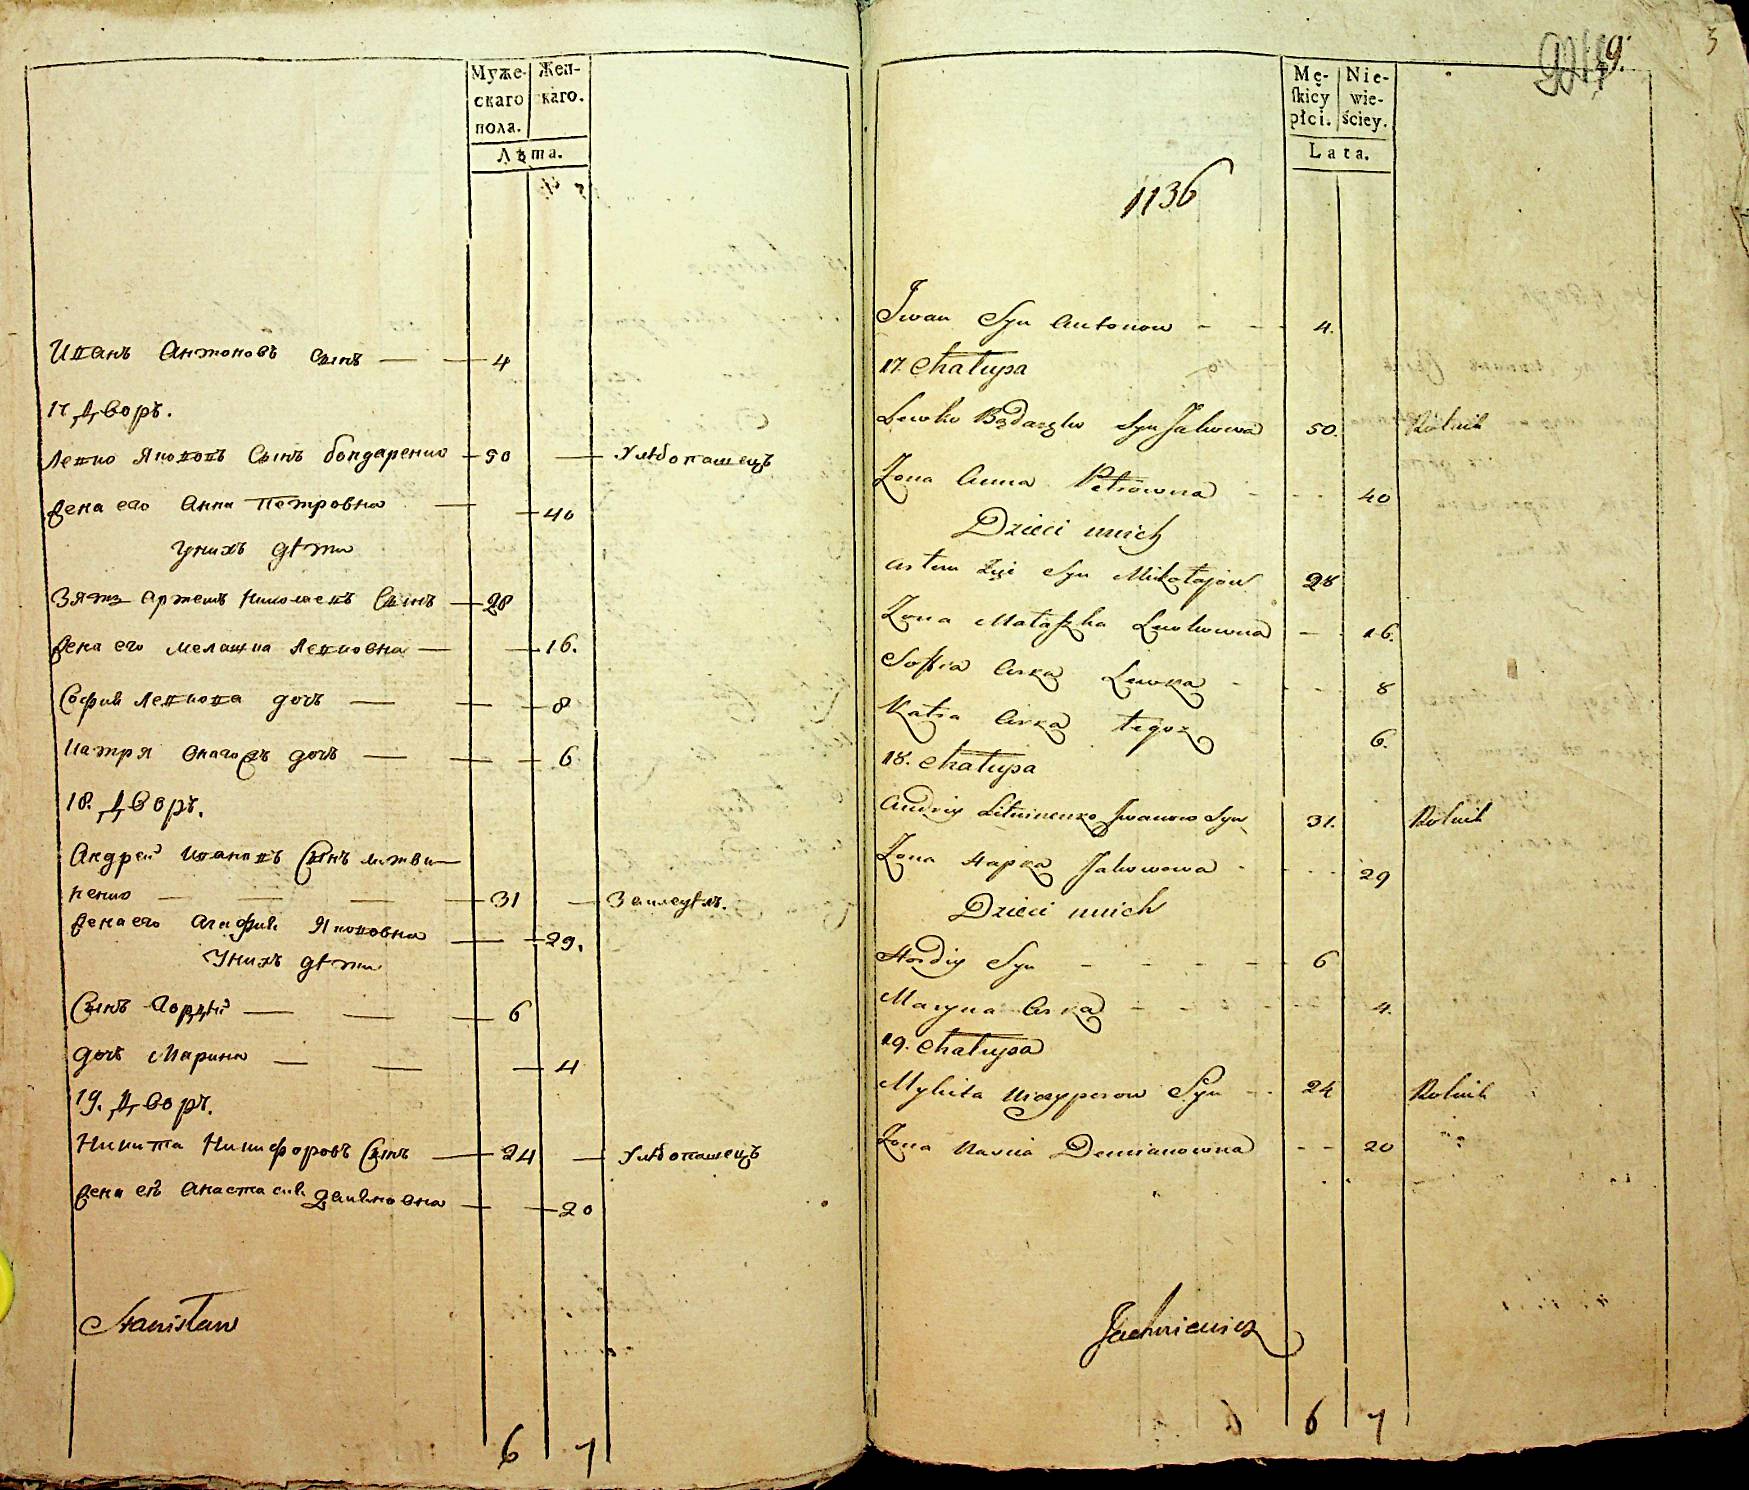 Муже- Жен-
скаго скаго.
пола.
Лѣта.
Иванъ Антоновъ сынъ 4
17. Дворъ.
Левко Якововъ Сынъ бондаренко 50 Хлѣбопашецъ
Жена его Анна Петровна 40
Унихъ дѣти
Зять Артемъ Николаевъ Сынъ 28
Жена его Мелашка Левковна 16.
София Левкова дочь 8
Катря онагожъ дочь 6
18. Дворъ.
Андрей Ивановъ Сынъ литви-
ненко 31
Жена его Агафия Якововна 29.
Унихъ дѣти
Сынъ Гордѣй 6
дочь Марина 4
19. Дворъ.
Никита Никифоровъ Сынъ 24 Хлѣбопашецъ
Жена его Анастасия Демяновна 20
Stanisław
6 7
9.
3
Mę- Nie-
skicy wie-
płci. ściey.
Lata.
1136
Iwan Syn Antonow 4.
17. Chałupa
Lewko Syn Jakowa 50. Rolnik
Żona Anna Petrowna 40
Dzieci unich
Artem Zięć Syn Mikołajow 28
Żona Małaszka Lewkowna 16.
Soffia Corka Lewka 8
Katra Corka tegoz 6.
18. Chałupa
Andrey Litwinenko Iwanow Syn 31. Rolnik
Żona Hapka Jakowowa 29
Dzieci unich
Hordiy Syn 6
Maryna Corka 4.
19. Chałupa
Mykita Syn 24 Rolnik
Żona Nascia Demianowna 20
Jachniewicz
6 7